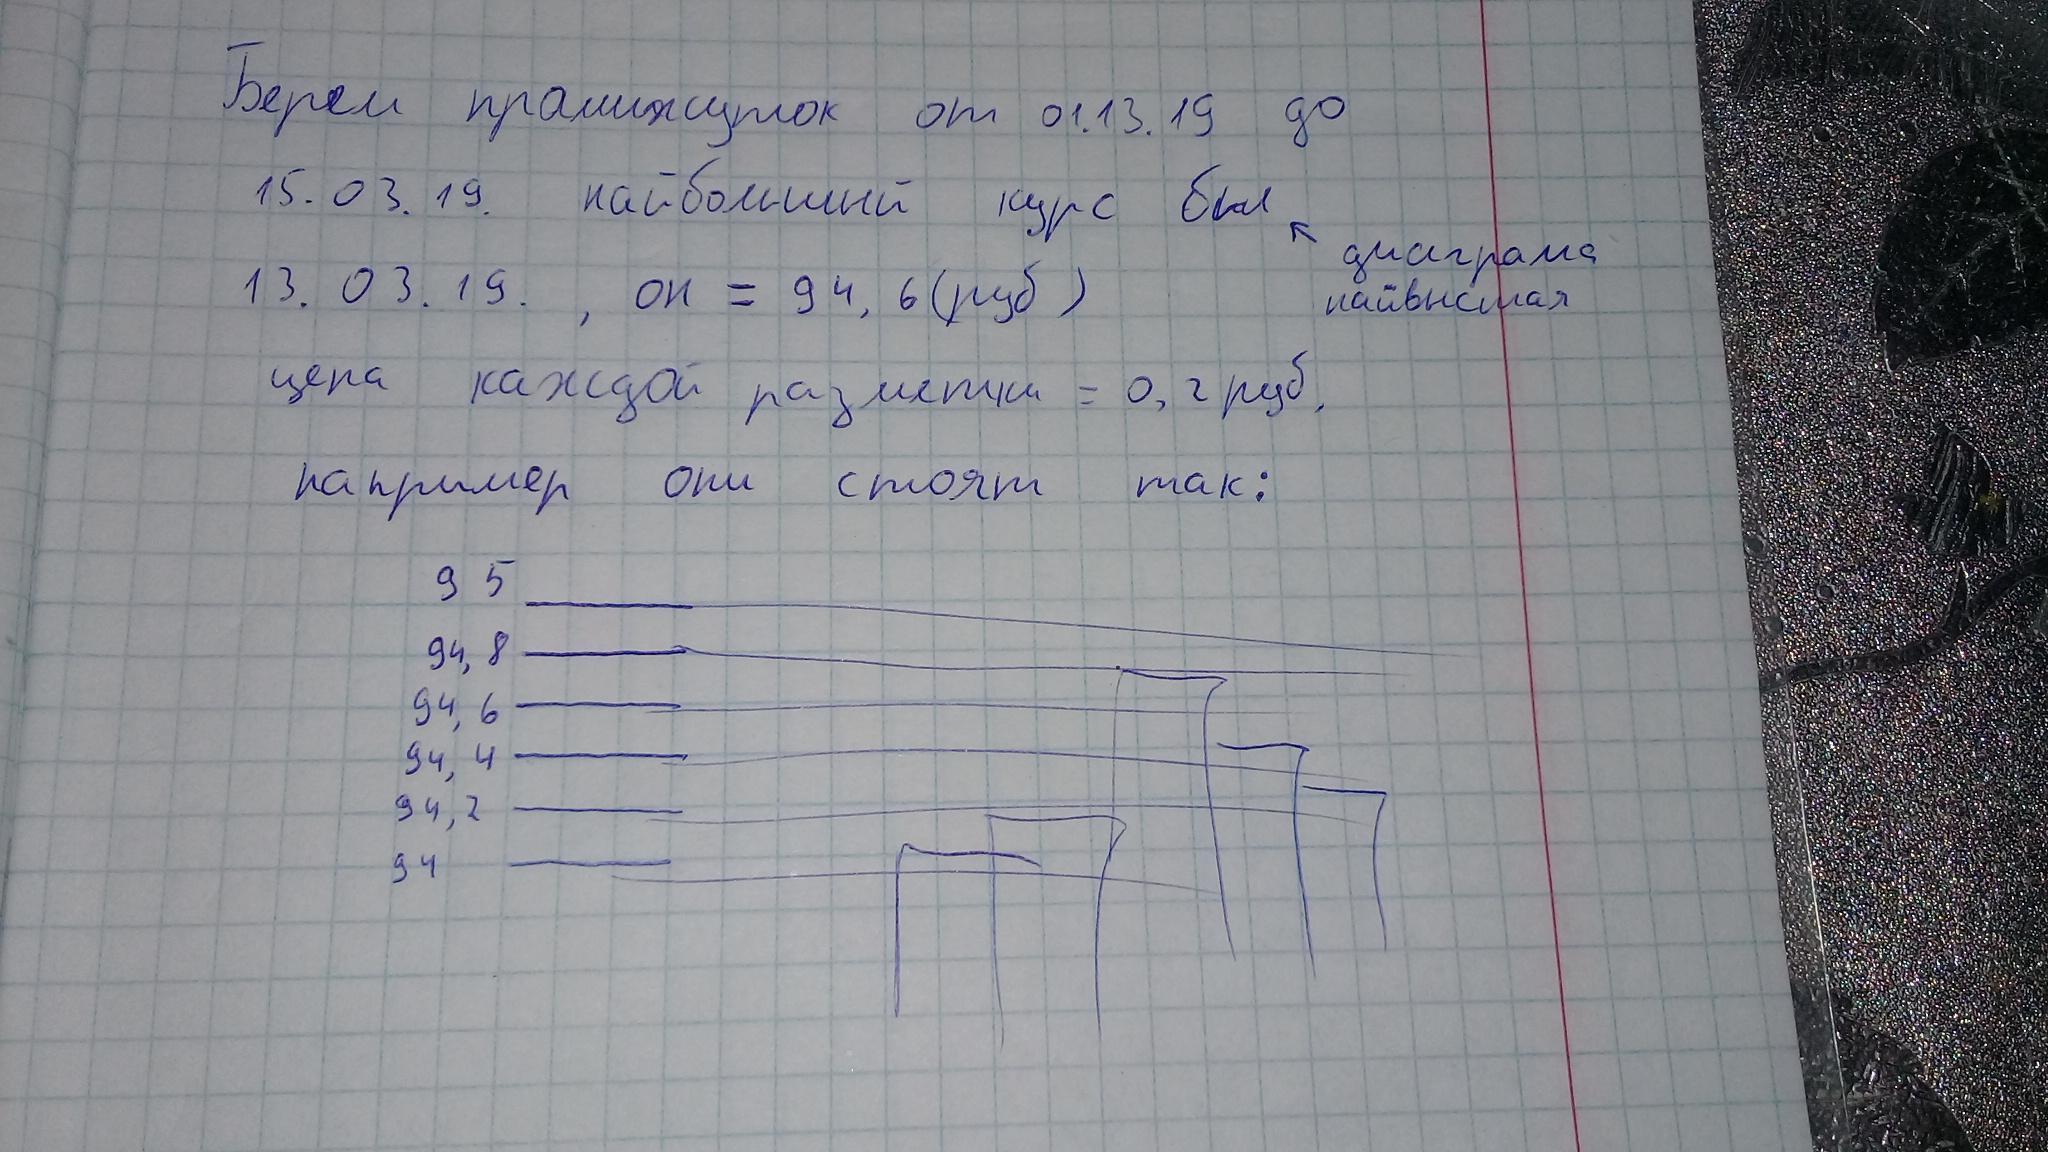 Берем промижуток от 01.13.19 до
15.03.19. найбольший курс был
диаграма
найвысшая
13.03.19. , он = 94,6 (руб)
цена каждой разметки = 0,2 руб.
например они стоят так:
95
94,8
94,6
94,4
94,2
94